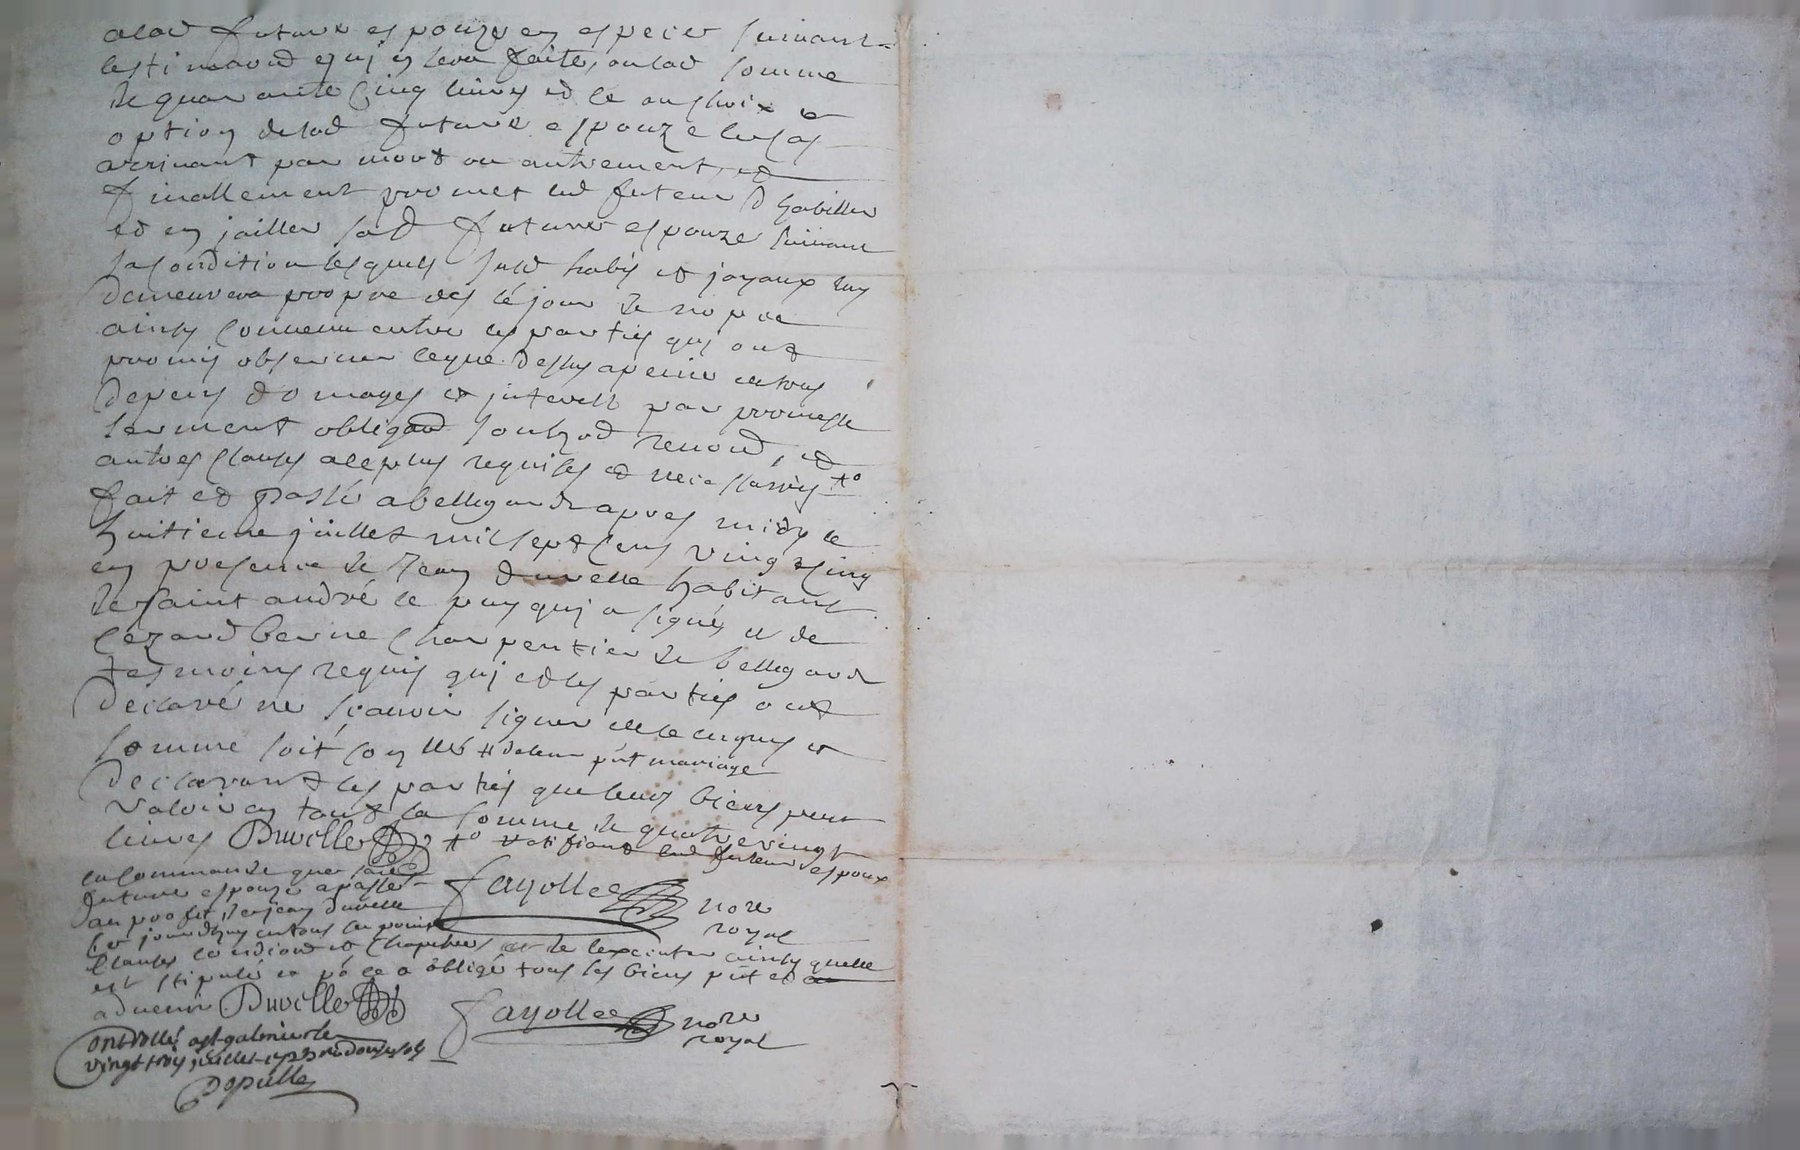 alad future espouze en espece suivant
lestimaond quj en sera faite, ou lad somme
de quarante cinq livres et ce au choix &
option de lad future espouze le cas
arrivant par mort ou autrement, et
finallement promet led futeur d'habiller
et en jailler sad future espouze suivant
sa condition lesquels susd habis et joyaux luy
demeurera propre des le jour de nopce
ainsy convenu entre les parties quj ont
promis observer ce que dessus a peine de tous
depens domages et interests par promesse
serment obligaond soubzod renond, et
autres clauses a ce plus requises et necessaires #
fait et passé a bellegarde apres midy le
huitieme juillet mil sept cens vingt cinq
en presence de Jean duvelle habitant
de saint andré le puy quj a signé et de
berne charpentier de bellegarde
tesmoins requis quj et les parties ont
declaré ne scavoir signer de ce enquis et
sommé soit conllé # valeur pnt mariage
declarant les parties que leurs biens peut
valoir en tout la somme de quatre vingt
livres Duvelle # ratifiant led futeur espoux
la commande que sad
future espouze a passé
au proffit de jean duvelle
ce jourdhuy en tous ses points
clauses condiond et chapitres et de lexecuter ainsy quelle
est stipulé et po ce a obligé tous ses biens pnt et a
advenir Duvelle
fayolle nore
royal
fayolle nore
royal
Controllé a st galmier le
vingt trois juillet 1725 Rs douze sols
Dopulle